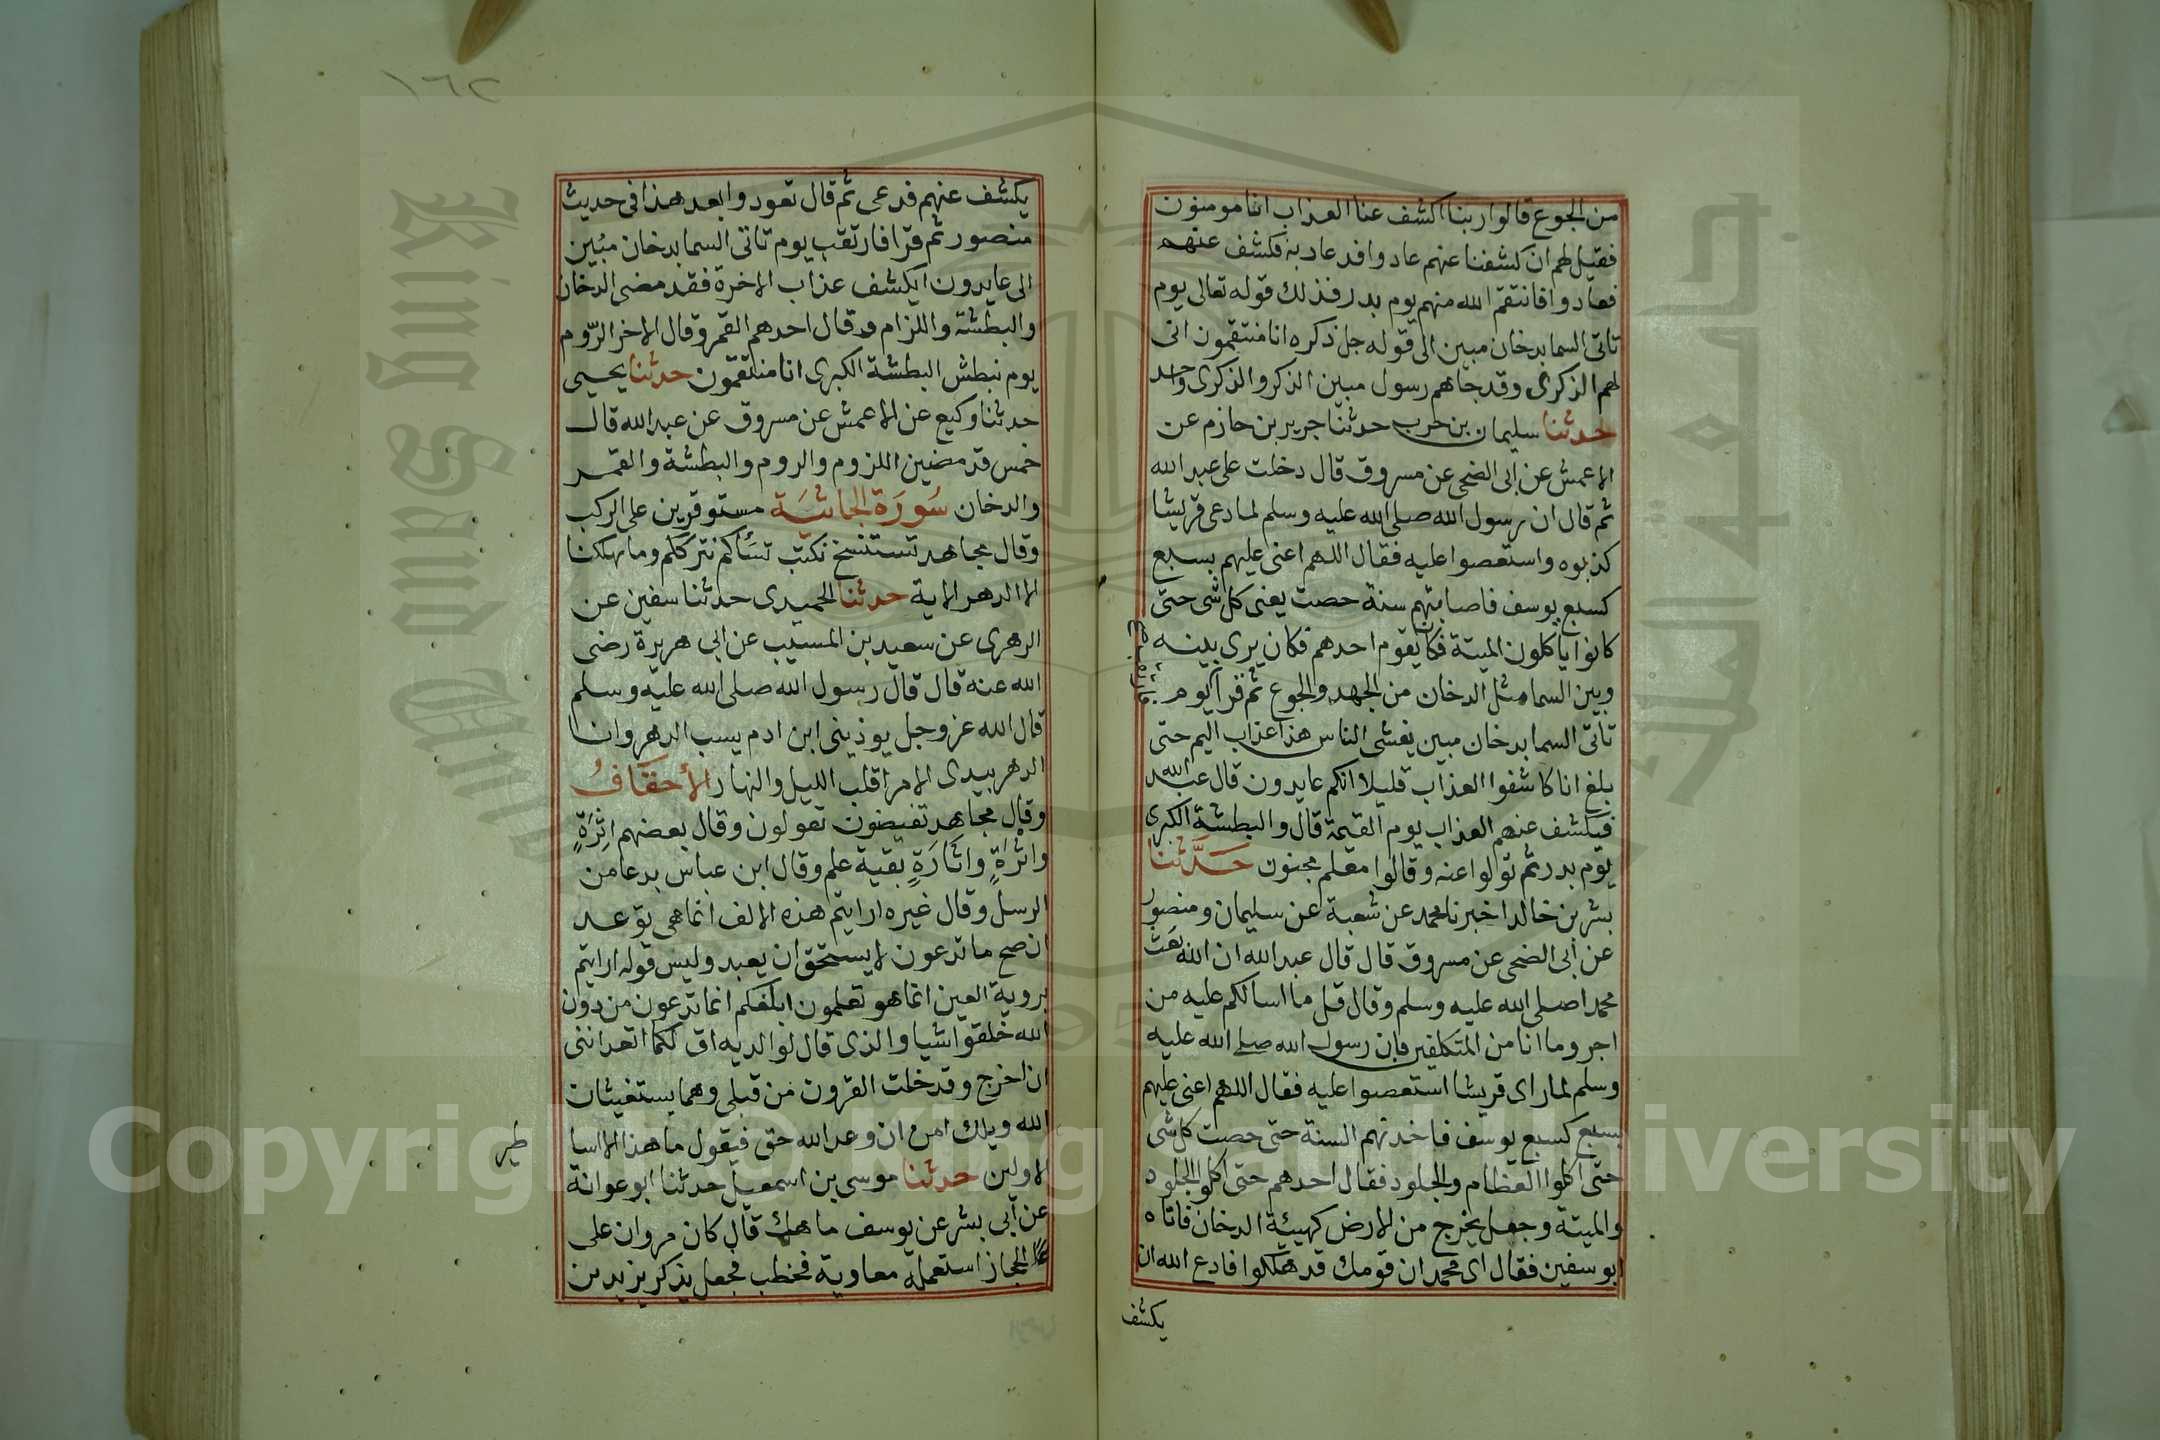 من الجوع قالوا ربنا اكشف عنا العذاب انا مومنون
فقيل لهم ان كشفنا عنهم عادوا فدعا ربه فكشف عنهم
فعادوا فانتقم الله منهم يوم بدر فذلك قوله تعالى يوم
تاتى السما بدخان مبين الى قوله جل ذكره انا منتقمون انى
لهم الذكرى وقد جاهم رسول مبين الذكر والذكرى واحد
حدثنا سليمان بن حرب حدثنا جرير بن حازم عن
الاعمش عن ابى الضحى عن مسروق قال دخلت على عبد الله
ثم قال ان رسول الله صلى الله عليه وسلم لما دعى قريشا
كذبوه واستعصوا عليه فقال اللهم اعنى عليهم بسبع
كسبع يوسف فاصابتهم سنة حصت يعنى كل شى حتى
كانوا ياكلون الميتة فكان يقوم احدهم فكان يرى بينه
وبين السما مثل الدخان من الجهد والجوع ثم قرا يوم
تاتى السما بدخان مبين يغشى الناس هذا عذاب اليم حتى
بلغ انا كاشفوا العذاب قليلا انكم عايدون قال عبد الله
فيكشف عنهم العذاب يوم القيمة قال والبطشة الكبرى
يوم بدر ثم تولوا عنه وقالوا معلم مجنون حدثنا
بشر بن خالد اخبرنا محمد عن شعبة عن سليمان ومنصور
عن أبى الضحى عن مسروق قال قال عبد الله ان الله بعث
محمدا صلى الله عليه وسلم وقال قل ما اسالكم عليه من
اجر وما انا من المتكلفين فان رسول الله صلى الله عليه
وسلم لما راى قريشا استعصوا عليه فقال اللهم اعنى عليهم
بسبع كسبع يوسف فاخذتهم السنة حتى حصت كل شى
حتى اكلوا العظام والجلود فقال احدهم حتى اكلوا الجلود
والميتة وجعل يخرج من الارض كهيئة الدخان فاتاه
ابو سفين فقال اى محمد ان قومك قد هلكوا فادع الله ان
يكشف
١٦٢
يكشف عنهم فدعى ثم قال تعودوا بعد هذا فى حديث
منصور ثم قرا فارتقب يوم تاتى السما بدخان مبين
الى عايدون ايكشف عذاب الاخرة فقد مضى الدخان
والبطشة واللزام وقال احدهم القمر وقال الاخر الرّوم
يوم نبطش البطشة الكبرى انا منتقمون حدثنا يحيى
حدثنا وكيع عن الاعمش عن مسروق عن عبد الله قال
خمس قد مضين اللزوم والروم والبطشة والقمر
والدخان سُورَة الجاثيَة مستوفزين على الركب
وقال مجاهد تستنسخ نكتب تنساكم نترككم وما يهلكنا
الا الدهر الاية حدثنا الحميدى حدثنا سفين عن
الزهرى عن سعيد بن المسيب عن ابى هريرة رضى
الله عنه قال قال رسول الله صلى الله عليه وسلم
قال الله عز وجل يوذينى ابن ادم يسب الدهر وانا
الدهر بيدى الامر اقلب الليل والنهار الأحقافُ
وقال مجاهد تفيضون تقولون وقال بعضهم اثرَةٍ
واثْرَةٍ واثَارَةٍ بقية علم وقال ابن عباس بدعا من
الرسل وقال غيره ارايتم هذه الالف انما هى توعد
ان صح ما تدعون لا يستحق ان يعبد وليس قوله ارايتم
بروية العين انما هو تعلمون ابلغكم انما تدعون من دون
الله خلقوا شيا والذى قال لوالديه اف لكما اتعداننى
ان اخرج وقد خلت القرون من قبلى وهما يستغيثان
الله ويلك امن ان وعد الله حق فيقول ما هذا الا اسا
طير
الاولين حدثنا موسى بن اسمعيل حدثنا ابو عوانة
عن أبى بشر عن يوسف ماهك قال كان مروان على
الحجاز استعمله معاوية فخطب فجعل يذكر يزيد بن
King Saud University
Copyright © King Saud University
1957